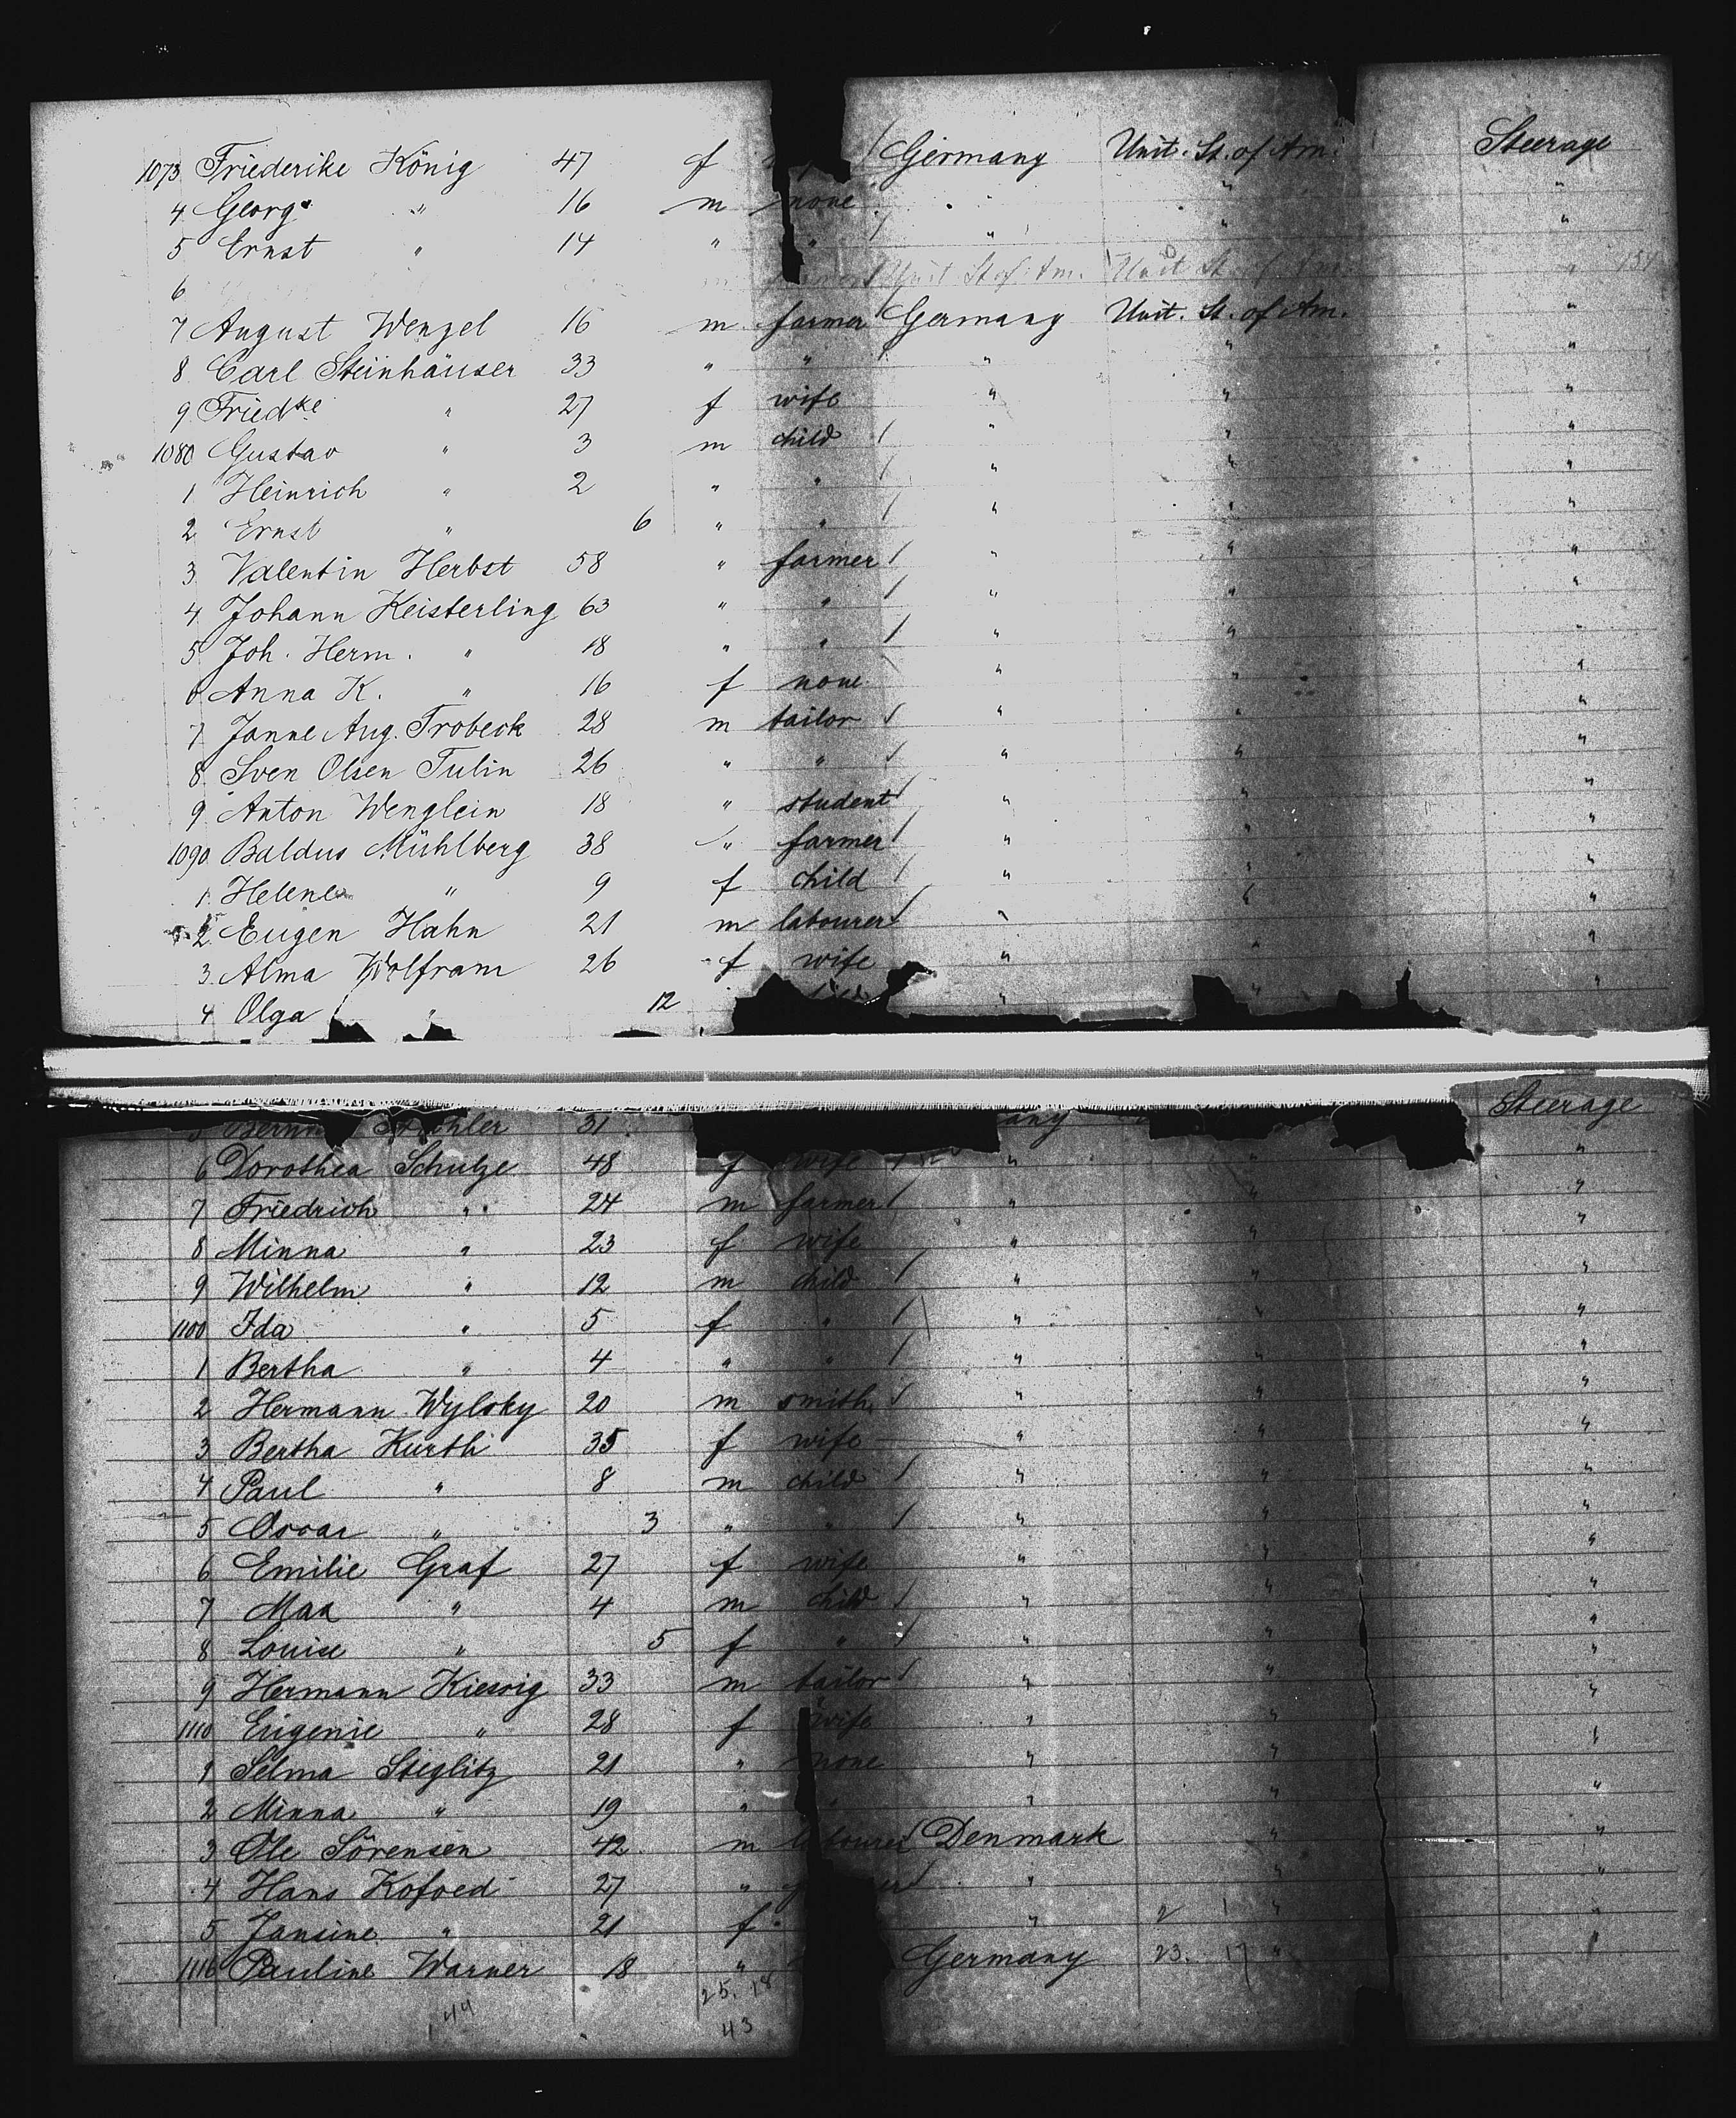 1073 Friederike König 47 f Germany Unit. St. of Am. Steerage
4 Georg " 16 m none " " "
5 Ernst " 14 " " " " "
6 Unit St. of Am. Unit St. of Am. "
7 August Wenzel 16 m farmer Germany Unit. St. of Am. "
8 Carl Steinhäuser 33 " " " " "
9 Friedke " 27 f wife " " "
1080 Gustav " 3 m child " " "
1 Heinrich " 2 " " " " "
2 Ernst " 6 " " " " "
3 Valentin Herbst 58 " farmer " " "
4 Johann Keisterling 63 " " " " "
5 Joh. Herm. " 18 " " " " "
6 Anna K. " 16 f none " " "
7 Janne Aug. Trobeck 28 m tailor " " "
8 Sven Olsen Tulin 26 " " " " "
9 Anton Wenglein 18 " student " " "
1090 Baldus Mühlberg 38 " farmer " " "
1 Helene " 9 f child " " "
2 Eugen Hahn 21 m labourer " " "
3 Alma Wolfram 26 f wife " " "
4 Olga " 12 " " "
5 31 Steerage
6 Dorothea Schulze 48 f wife " " "
7 Friedrich " 24 m farmer " " "
8 Minna " 23 f wife " " "
9 Wilhelm " 12 m child " " "
1100 Ida " 5 f " " " "
1 Bertha " 4 " " " " "
2 Hermann Wylsky 20 m smith " " "
3 Bertha Kurth 35 f wife " " "
4 Paul " 8 m child " " "
5 Oscar " 3 " " " " "
6 Emilie Graf 27 f wife " " "
7 Max " 4 m child " " "
8 Louise " 5 f " " " "
9 Hermann Kiessig 33 m tailor " " "
1110 Eugenie " 28 f wife " " "
1 Selma Stieglitz 21 " none " " "
2 Minna " 19 " " " " "
3 Ole Sörensen 42 m labourer Denmark " "
4 Hans Kofoed 27 " " " "
5 Jansine " 21 f " 2 1 " "
1116 Pauline Warner 18 " Germany 23. 17 " "
44 25. 18
43